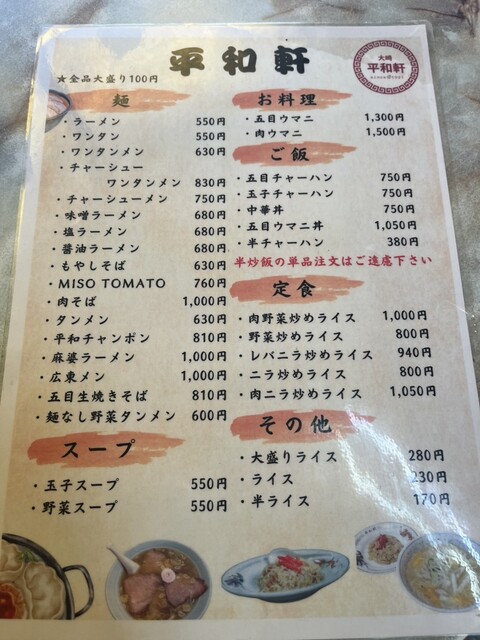 平和軒
大崎
平和軒
★全品大盛り100円
麺
・ラーメン 550円
・ワンタン 550円
・ワンタンメン 630円
・チャーシュー
ワンタンメン 830円
・チャーシューメン 750円
・味噌ラーメン 680円
・塩ラーメン 680円
・醤油ラーメン 680円
・もやしそば 630円
・MISO TOMATO 760円
・肉そば 1,000円
・タンメン 630円
・平和チャンポン 810円
・麻婆ラーメン 1,000円
・広東メン 1,000円
・五目生焼きそば 810円
・麺なし野菜タンメン 600円
スープ
・玉子スープ 550円
・野菜スープ 550円
お料理
・五目ウマニ 1,300円
・肉ウマニ 1,500円
ご飯
・五目チャーハン 750円
・玉子チャーハン 750円
・中華丼 750円
・五目ウマニ丼 1,050円
・半チャーハン 380円
半炒飯の単品注文はご遠慮下さい
定食
・肉野菜炒めライス 1,000円
・野菜炒めライス 800円
・レバニラ炒めライス 940円
・ニラ炒めライス 800円
・肉ニラ炒めライス 1,050円
その他
・大盛りライス 280円
・ライス 230円
・半ライス 170円